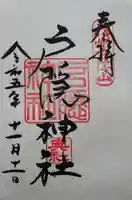 奉拝
戸隠神社
令和五年
十一月十一日